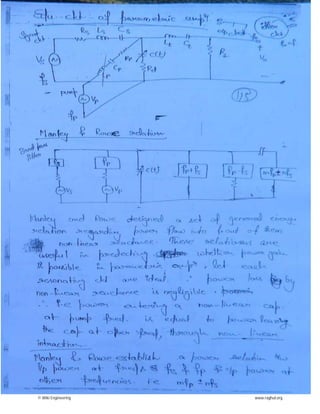 Equ. ckt of parametric amp
Signal ckt
Rs Ls Cs
C(t)
Lt Ct
RL
Vs
fs
Cp
Rp
pump
Vp
fp
Manley & Rowe relation
Band pass filter
fs
fp
C(t)
fp+fs
fp-fs
mfp±nfs
Vs
Vp
Manley and Rowe designed a set of general energy
relation regarding power flow into & out of them
non linear reactance. These relations are
useful in predicting whether power gain
is possible in parametric amps, let each
resonating ckt are ideal power loss by
non-linear reactance is negligible.
i.e power entering a non-linear cap.
at pump freq. is equal to power leaving
the cap at other freq, through non linear
interaction.
Manley & Rowe establish a power relation b/w
i/p power at freq's fs & fp & o/p power at
other frequencies. i.e mfp ± nfs
© Blibi Engineering
www.raghul.org